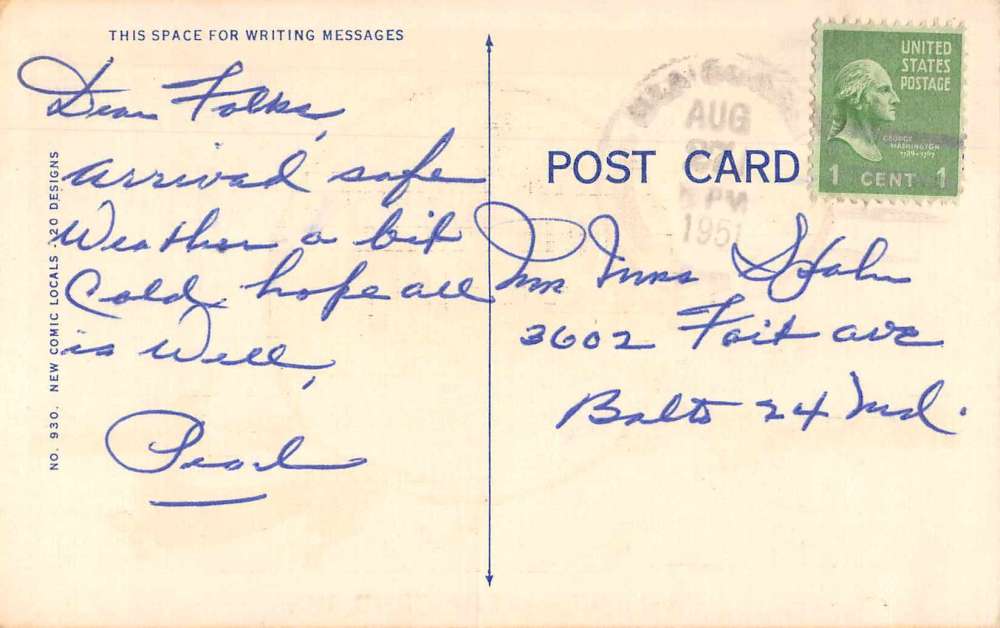 THIS SPACE FOR WRITING MESSAGES
Dear Folks,
arrived safe
Weather a bit
Cold, hope all
is Well,
Pearl
NO. 930. NEW COMIC LOCALS - 20 DESIGNS
POST CARD
AUG
PM
1951
UNITED
STATES
POSTAGE
GEORGE
WASHINGTON
1789-1797
1 CENT 1
Mr Mrs
3602 Fait ave
Balto 24 Md.